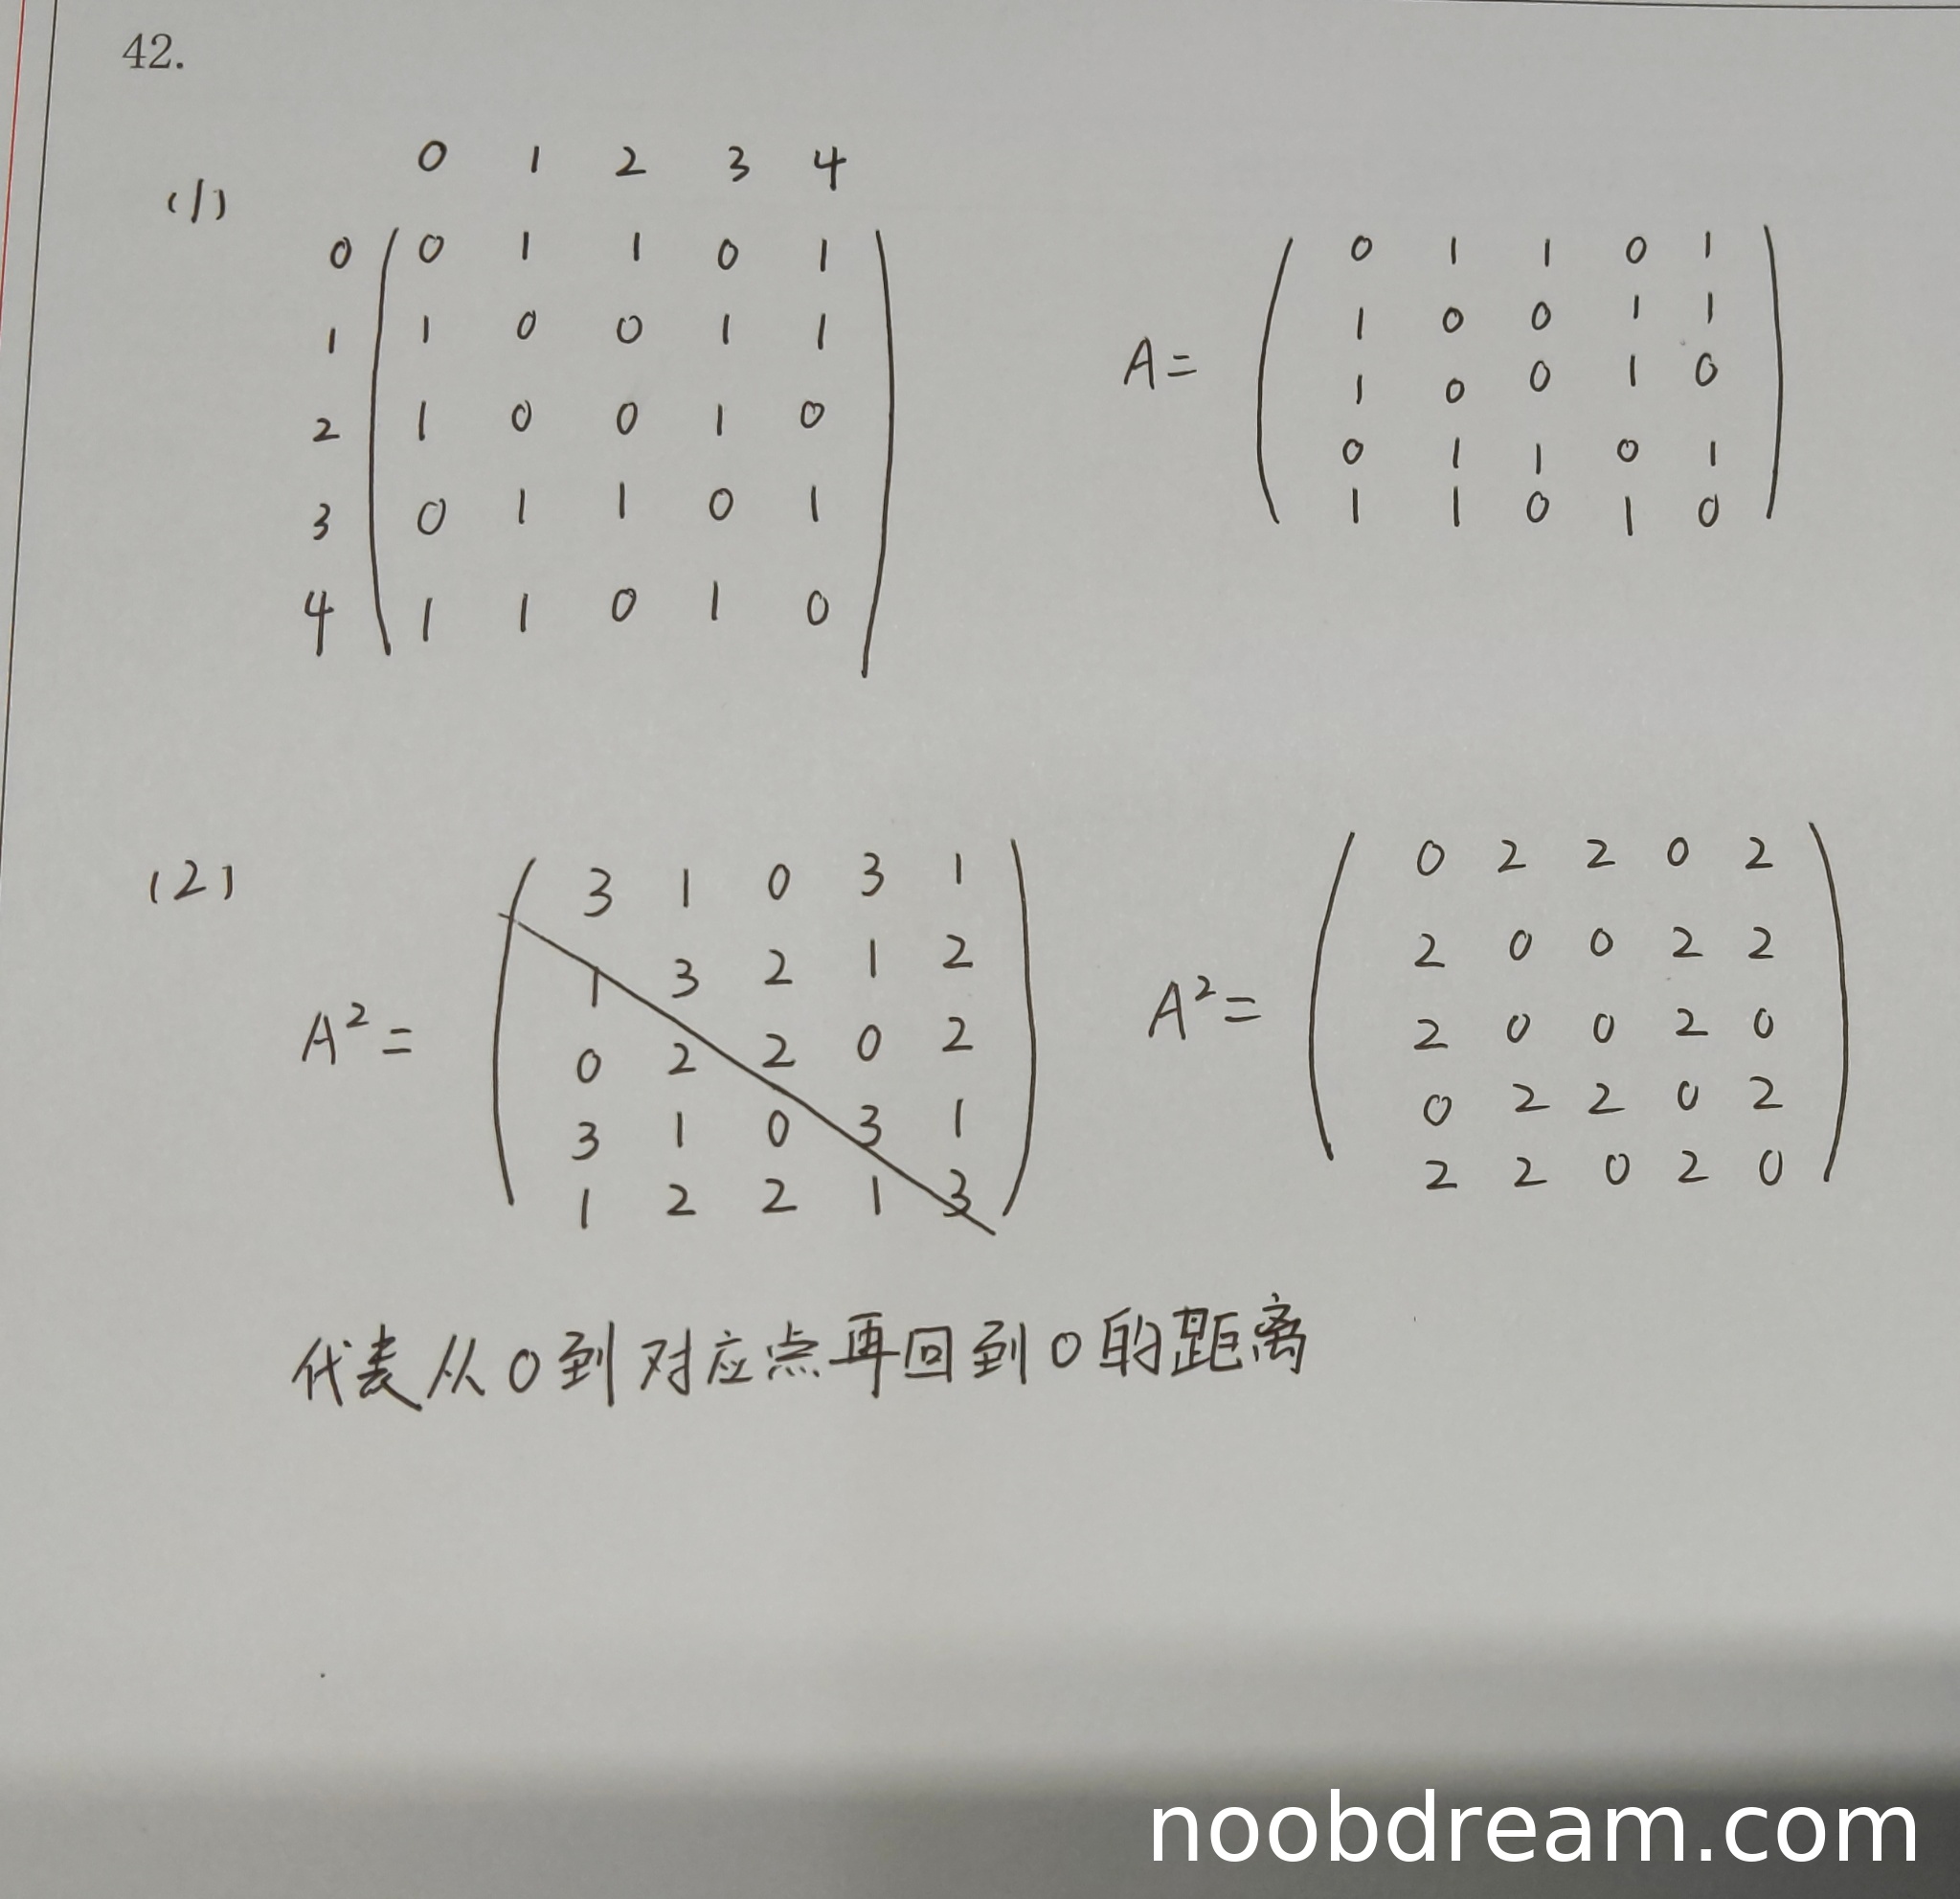 42.
(1)
0 1 2 3 4
0 0 1 1 0 1
1 1 0 0 1 1
2 1 0 0 1 0
3 0 1 1 0 1
4 1 1 0 1 0
A=
0 1 1 0 1
1 0 0 1 1
1 0 0 1 0
0 1 1 0 1
1 1 0 1 0
(2)
A²=
3 1 0 3 1
1 3 2 1 2
0 2 2 0 2
3 1 0 3 1
1 2 2 1 3
A²=
0 2 2 0 2
2 0 0 2 2
2 0 0 2 0
0 2 2 0 2
2 2 0 2 0
代表从0到对应点再回到0的距离
noobdream.com